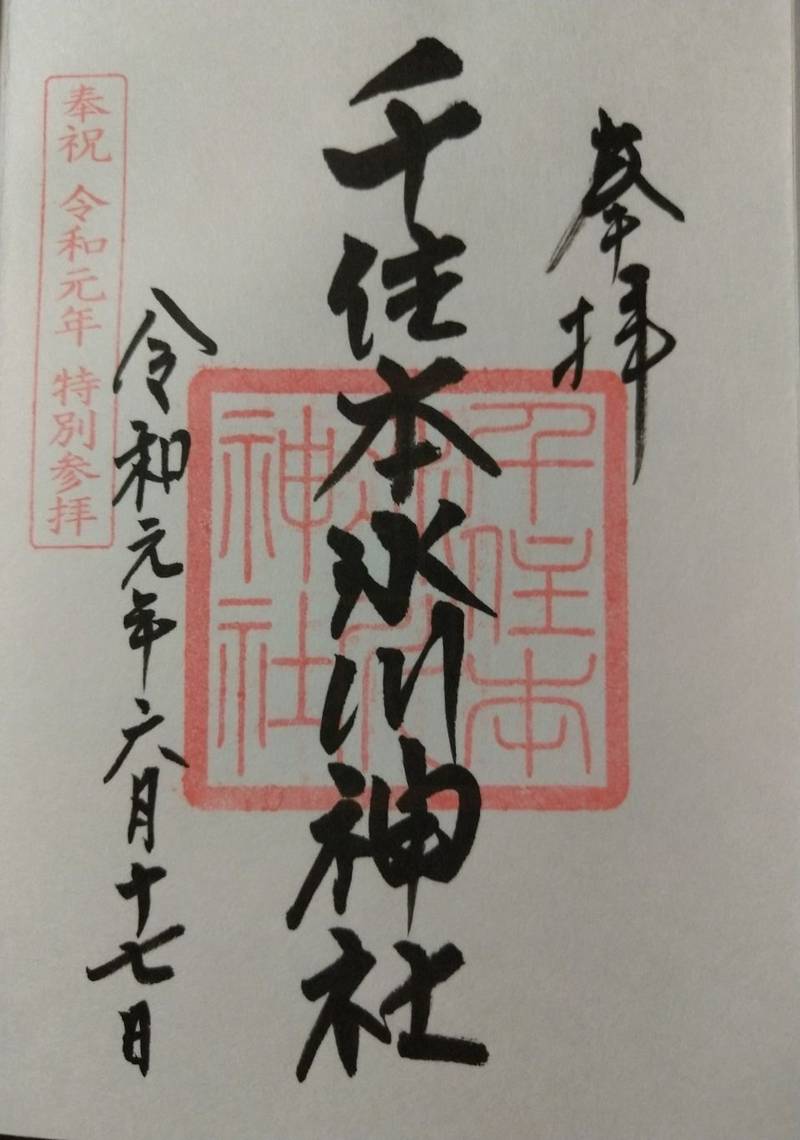 奉拝
千住本氷川神社
千住本
氷川
神社
令和元年六月十七日
奉祝 令和元年 特別参拝